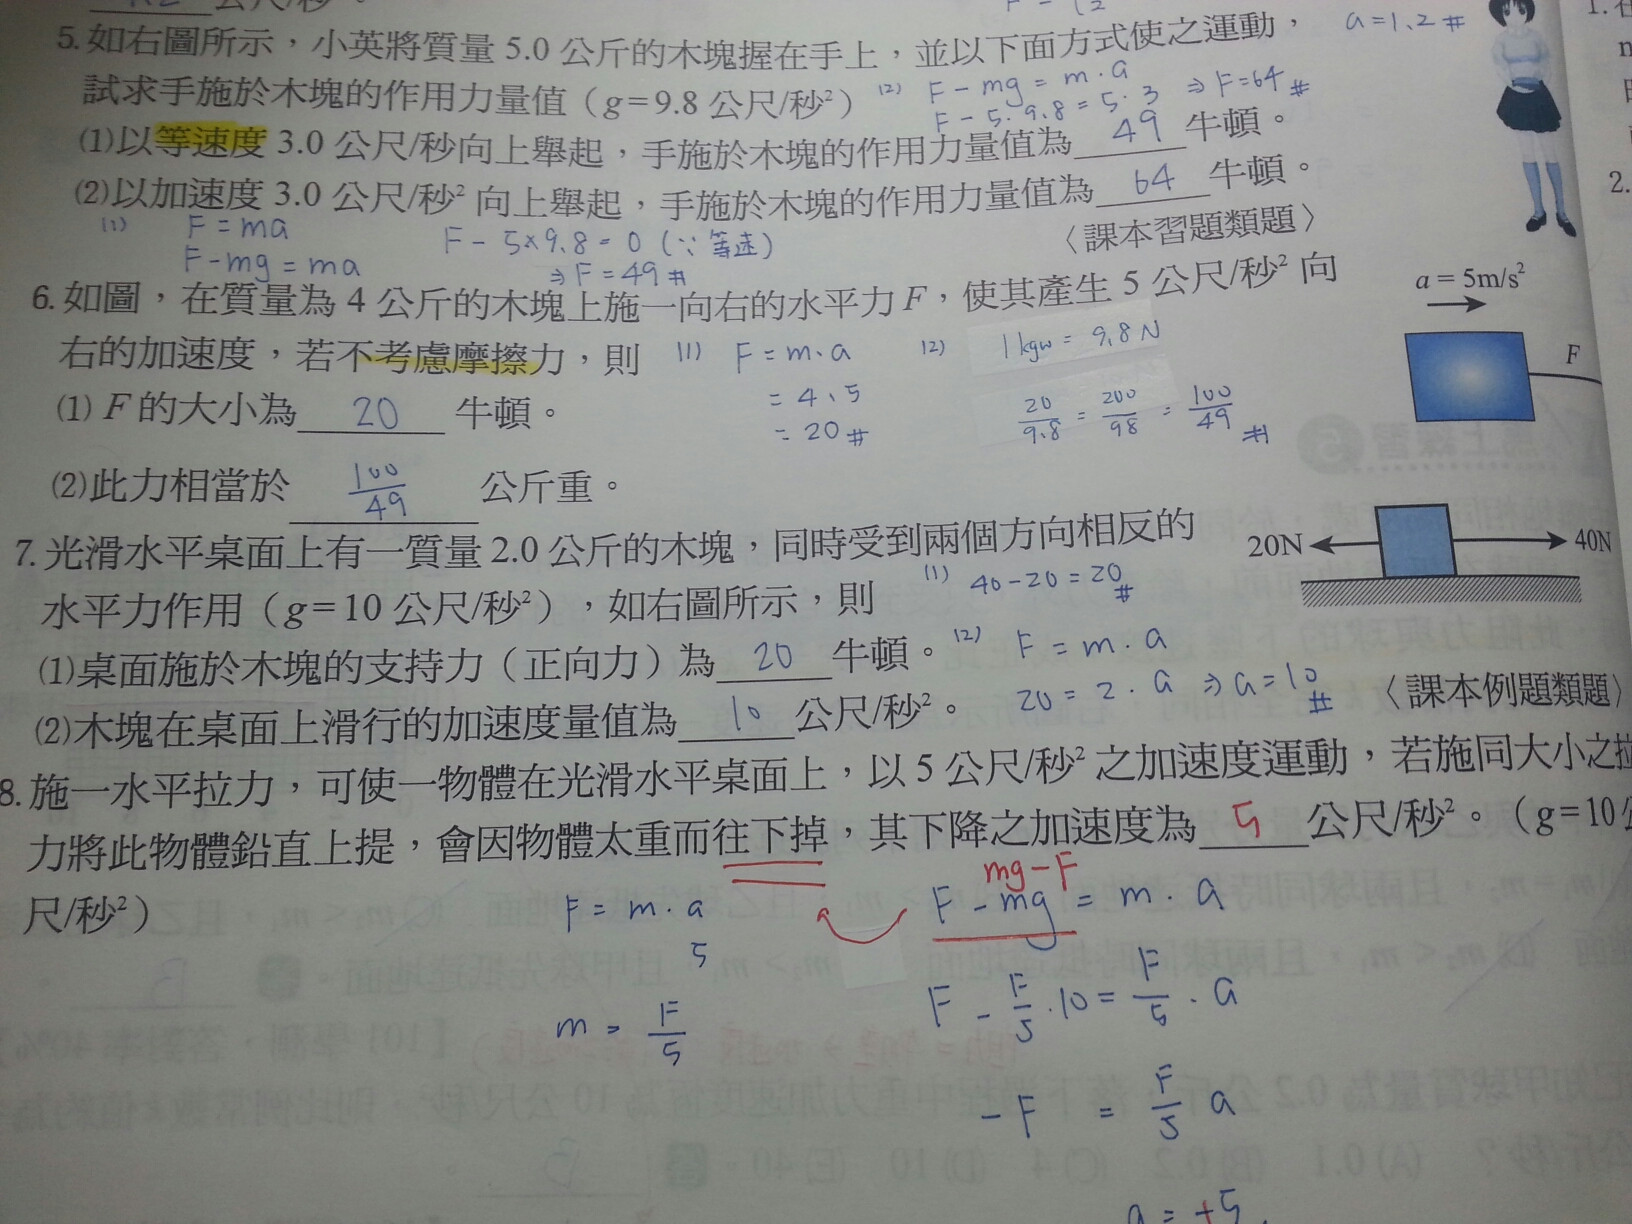 公尺/秒²。
F = 12
a = 1.2 #
5. 如右圖所示，小英將質量 5.0 公斤的木塊握在手上，並以下面方式使之運動，
試求手施於木塊的作用力量值（g=9.8 公尺/秒²）
(2) F - mg = m · a ⇒ F = 64 #
F - 5 · 9.8 = 5 · 3
(1)以等速度 3.0 公尺/秒向上舉起，手施於木塊的作用力量值為 49 牛頓。
(2)以加速度 3.0 公尺/秒² 向上舉起，手施於木塊的作用力量值為 64 牛頓。
〈課本習題類題〉
(1) F = ma
F - mg = ma
F - 5×9.8 = 0 (∵ 等速)
⇒ F = 49 #
6. 如圖，在質量為 4 公斤的木塊上施一向右的水平力 F，使其產生 5 公尺/秒² 向
右的加速度，若不考慮摩擦力，則
(1) F 的大小為 20 牛頓。
(2)此力相當於 100/49 公斤重。
(1) F = m · a
= 4 · 5
= 20 #
(2) 1 kgw = 9.8 N
20/9.8 = 200/98 = 100/49 #
a = 5m/s²
F
7. 光滑水平桌面上有一質量 2.0 公斤的木塊，同時受到兩個方向相反的
水平力作用（g=10 公尺/秒²），如右圖所示，則
(1)桌面施於木塊的支持力（正向力）為 20 牛頓。
(2)木塊在桌面上滑行的加速度量值為 10 公尺/秒²。
〈課本例題類題〉
(1) 40 - 20 = 20 #
(2) F = m · a
20 = 2 · a ⇒ a = 10 #
20N
40N
8. 施一水平拉力，可使一物體在光滑水平桌面上，以 5 公尺/秒² 之加速度運動，若施同大小之拉
力將此物體鉛直上提，會因物體太重而往下掉，其下降之加速度為 5 公尺/秒²。（g=10 公
尺/秒²）
F = m · a
5
m = F/5
mg - F
F - mg = m · a
F - F/5 · 10 = F/5 · a
-F = F/5 a
a = +5
1.
2.